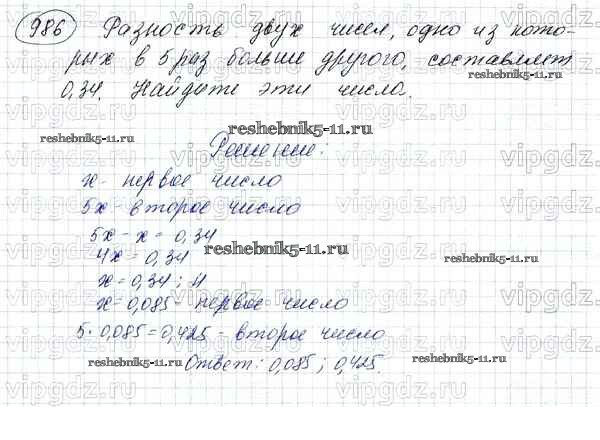 986 Разность двух чисел, одно из кото-
рых в 5 раз больше другого, составляет
0,34. Найдите эти числа.
reshebnik5-11.ru
reshebnik5-11.ru
reshebnik5-11.ru
Решение:
х - первое число
5х - второе число
5х - х = 0,34
4х = 0,34
reshebnik5-11.ru
reshebnik5-11.ru
х = 0,34 : 4
х = 0,085 - первое число
5 · 0,085 = 0,425 - второе число
Ответ: 0,085 ; 0,425.
reshebnik5-11.ru
reshebnik5-11.ru
vipgdz.ru